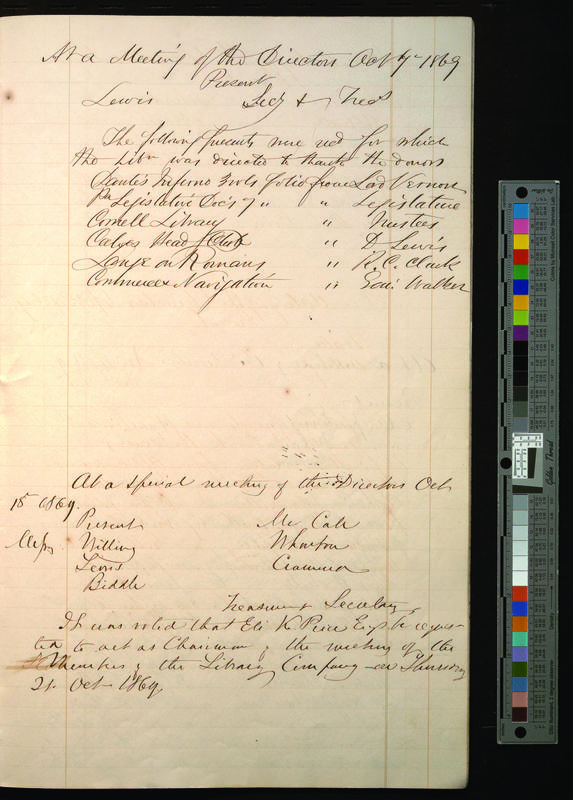 At a Meeting of the Directors Oct 7th 1869
Present
Lewis Secy & Treas
The following presents were recd for which
the Libn was directed to thank the donors
Dante's Inferno 3 vols folio from Lord Vernon
Pa Legislative Doc's 7 " " Legislature
Cornell Library " Trustees
Calyx Head " D Lewis
Lange on Romans " R. C. Clark
Commerce & Navigation " Walker
At a special meeting of the Directors Oct
18th 1869.
Present Mc Call
Messrs. Willing Wharton
Lewis Crammer
Biddle
Treasurer & Secretary
It was voted that Eli K Price Esq be reques-
ted to act as Chairman of the meeting of the
Members of the Library Company on Thursday
21. Oct 1869.